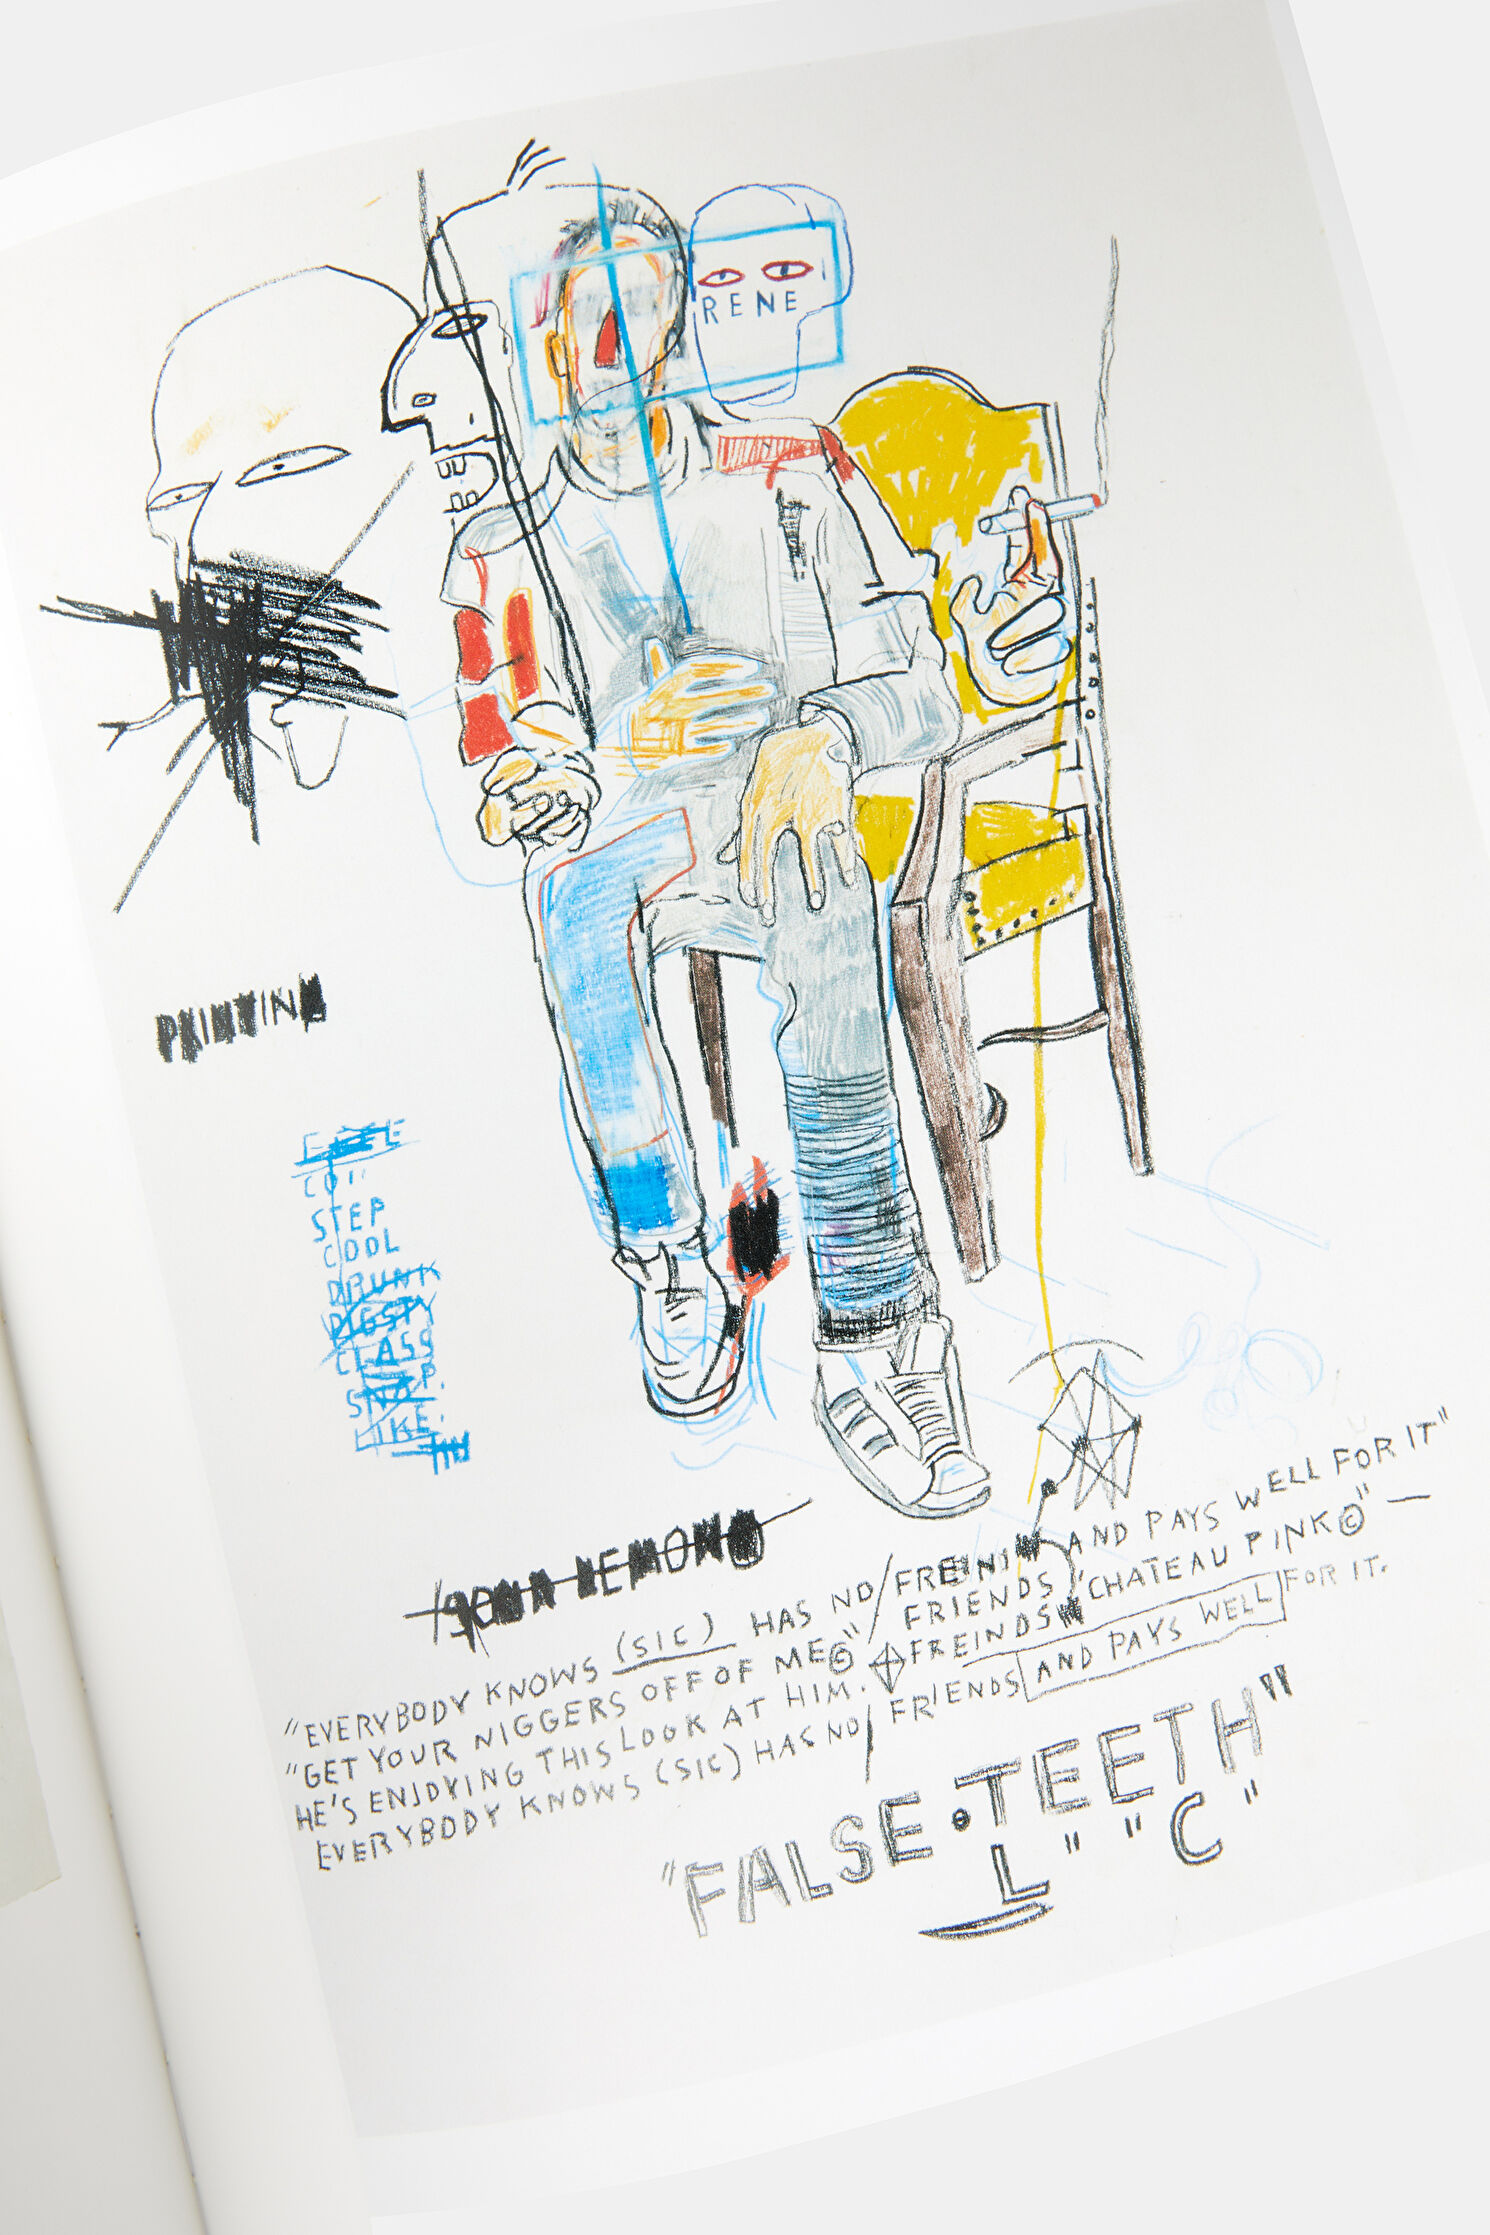 RENE
STEP
COOL
DRUNK
CLASS
"EVERYBODY KNOWS (SIC) HAS NO/FREINDS AND PAYS WELL FOR IT"
"GET YOUR NIGGERS OFF OF ME©"/ FRIENDS "CHATEAU PINK©" —
HE'S ENJOYING THIS LOOK AT HIM. FREINDS
EVERYBODY KNOWS (SIC) HAS NO/ FRIENDS AND PAYS WELL FOR IT.
"FALSE•TEETH"
L" "C"